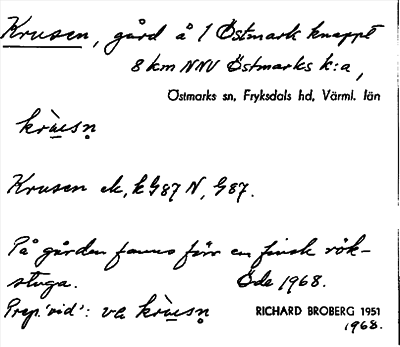 Krusen, gård å 1 Östmark knappt
8 km NNV Östmarks k:a,
Östmarks sn, Fryksdals hd, Värml. län
krùsn̥
Krusen ek, kG87N, G87.
På gården fanns förr en finsk rök-
stuga. Öde 1968.
Prep. 'vid': va krùsn̥ RICHARD BROBERG 1951
1968.